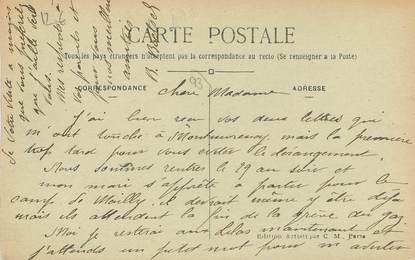 CARTE POSTALE
Tous les pays étrangers n'acceptent pas la correspondance au recto (Se renseigner à la Poste)
CORRESPONDANCE
ADRESSE
93
Chère Madame
J'ai bien reçu vos deux lettres qui
m'ont touchée à Montmorency, mais la première
trop tard pour vous éviter le dérangement.
Nous sommes rentrés le 29 au soir et
mon mari s'apprête à partir pour le
camp de Mailly, il devrait même y être déjà
mais ils attendent la fin de la grève du gaz
Moi je resterai aux Lilas maintenant et
j'attends un petit mot pour m'avertir
Edition Artistique C. M., Paris
de Votre visite à moins
que vous préfériez
que j'aille
Mes respects à
vos parents et
pour vous
amitiés